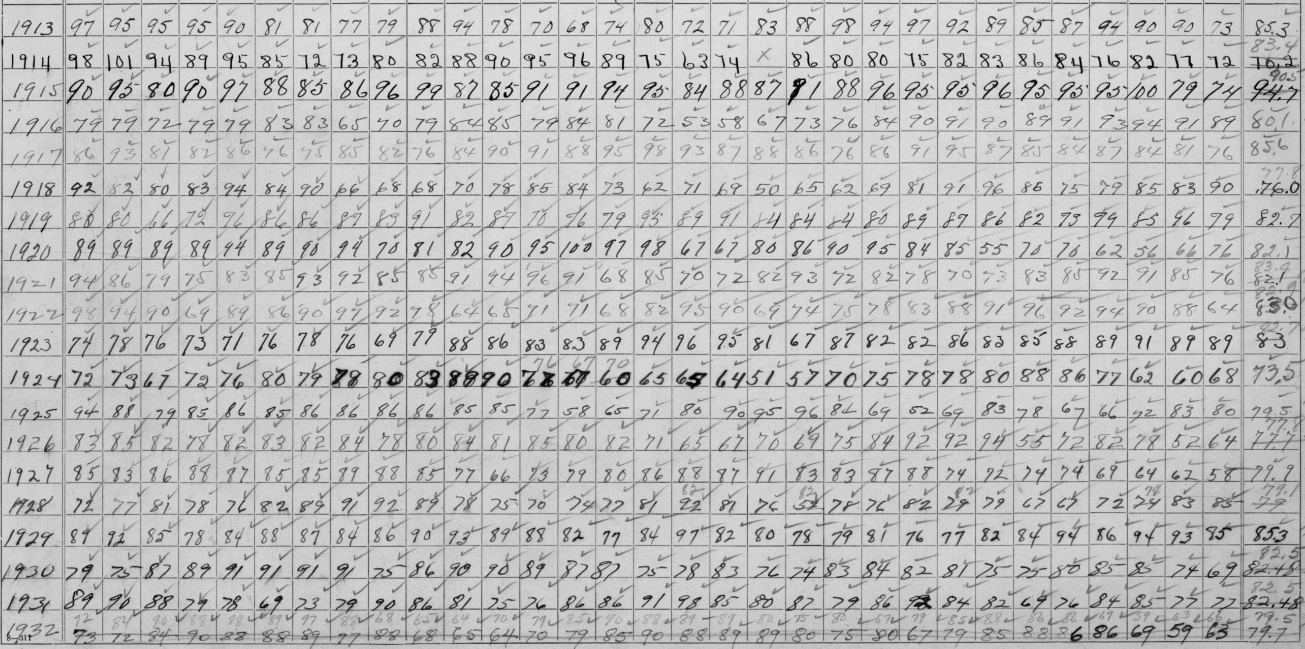 1913 97 95 95 95 90 81 81 77 79 88 94 78 70 68 74 80 72 71 83 88 98 94 97 92 89 85 87 94 90 90 73 85.3
83.4
1914 98 101 94 89 95 85 72 73 80 82 88 90 95 96 89 75 63 74 x 86 80 80 75 82 83 86 84 76 82 77 72
90.5
1915 90 95 80 90 97 88 85 86 96 99 87 85 91 91 94 95 84 88 87 91 88 96 95 95 96 95 95 95 100 79 74 94.7
1916 79 79 72 79 79 83 83 65 70 79 84 85 79 84 81 72 53 58 67 73 76 84 90 91 90 89 91 93 94 91 89 80.1
1917 86 93 81 82 86 76 75 85 82 76 84 90 91 88 95 98 93 87 88 86 76 86 91 95 87 85 84 87 84 81 76 85.6
77.8
1918 92 82 80 83 94 84 90 66 68 68 70 78 85 84 73 62 71 69 50 65 62 69 81 91 96 86 75 79 85 83 90 76.0
1919 80 80 66 72 76 86 86 87 83 91 82 87 78 76 79 95 89 91 84 84 84 80 89 87 86 82 73 79 85 96 79 82.7
1920 89 89 89 89 94 89 90 94 70 81 82 90 95 100 97 98 67 67 80 86 90 95 84 85 55 70 70 62 56 66 76 82.1
83.9
1921 94 86 79 75 83 85 93 92 85 85 91 94 96 91 68 85 70 72 82 93 72 82 78 70 73 83 85 92 91 85 76 82.1
1922 98 94 90 69 89 86 90 97 92 78 64 65 71 71 68 82 95 90 69 74 75 78 83 88 91 96 92 94 90 88 64
82.7
1923 74 78 76 73 71 76 78 76 69 79 88 86 83 83 89 94 96 95 81 67 87 82 82 86 83 85 88 89 91 89 89 83
76 67 70
1924 72 73 67 72 76 80 79 78 80 83 88 90 78 67 60 65 65 64 51 57 70 75 78 78 80 88 86 77 62 60 68 73.5
1925 94 88 79 85 86 85 86 86 86 86 85 85 77 58 65 71 80 90 95 96 84 69 52 69 83 78 67 66 72 83 80 79.5
77.7
1926 83 85 82 78 82 83 82 84 78 80 84 81 85 80 82 71 65 67 70 69 75 84 92 92 94 55 72 82 78 52 64 77.7
1927 85 83 86 88 87 85 85 89 88 85 77 66 73 79 80 86 88 87 91 83 83 87 88 74 72 74 74 69 64 62 58 79.9
79.1
1928 72 77 81 78 76 82 89 91 92 89 78 75 70 74 77 81 81 76 78 76 82 79 79 67 67 72 74 83 85 79
1929 89 92 85 78 84 88 87 84 86 90 93 89 88 82 77 84 97 82 80 78 79 81 76 77 82 84 94 86 94 93 85 85.3
82.5
1930 79 75 87 89 91 91 91 91 75 86 90 90 89 87 87 75 78 83 76 74 83 84 82 81 75 75 80 85 85 74 69 82.48
82.5
1931 89 90 88 79 78 69 73 79 90 86 81 75 76 86 86 91 98 85 80 87 79 86 92 84 82 69 76 84 85 77 77 82.48
79.5
1932 73 72 84 90 88 88 89 97 88 68 65 64 70 79 85 90 88 89 89 80 75 80 67 79 85 88 86 86 69 59 63 79.7